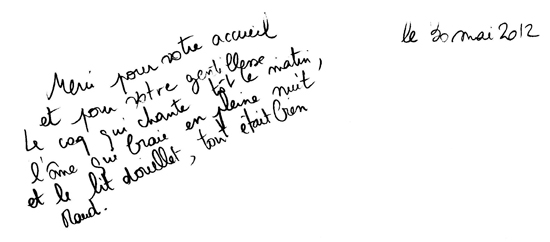 le 30 mai 2012
Merci pour votre accueil
et pour votre gentillesse
Le coq qui chante tôt le matin,
l'âne qui braie en pleine nuit,
et le lit douillet, tout était bien